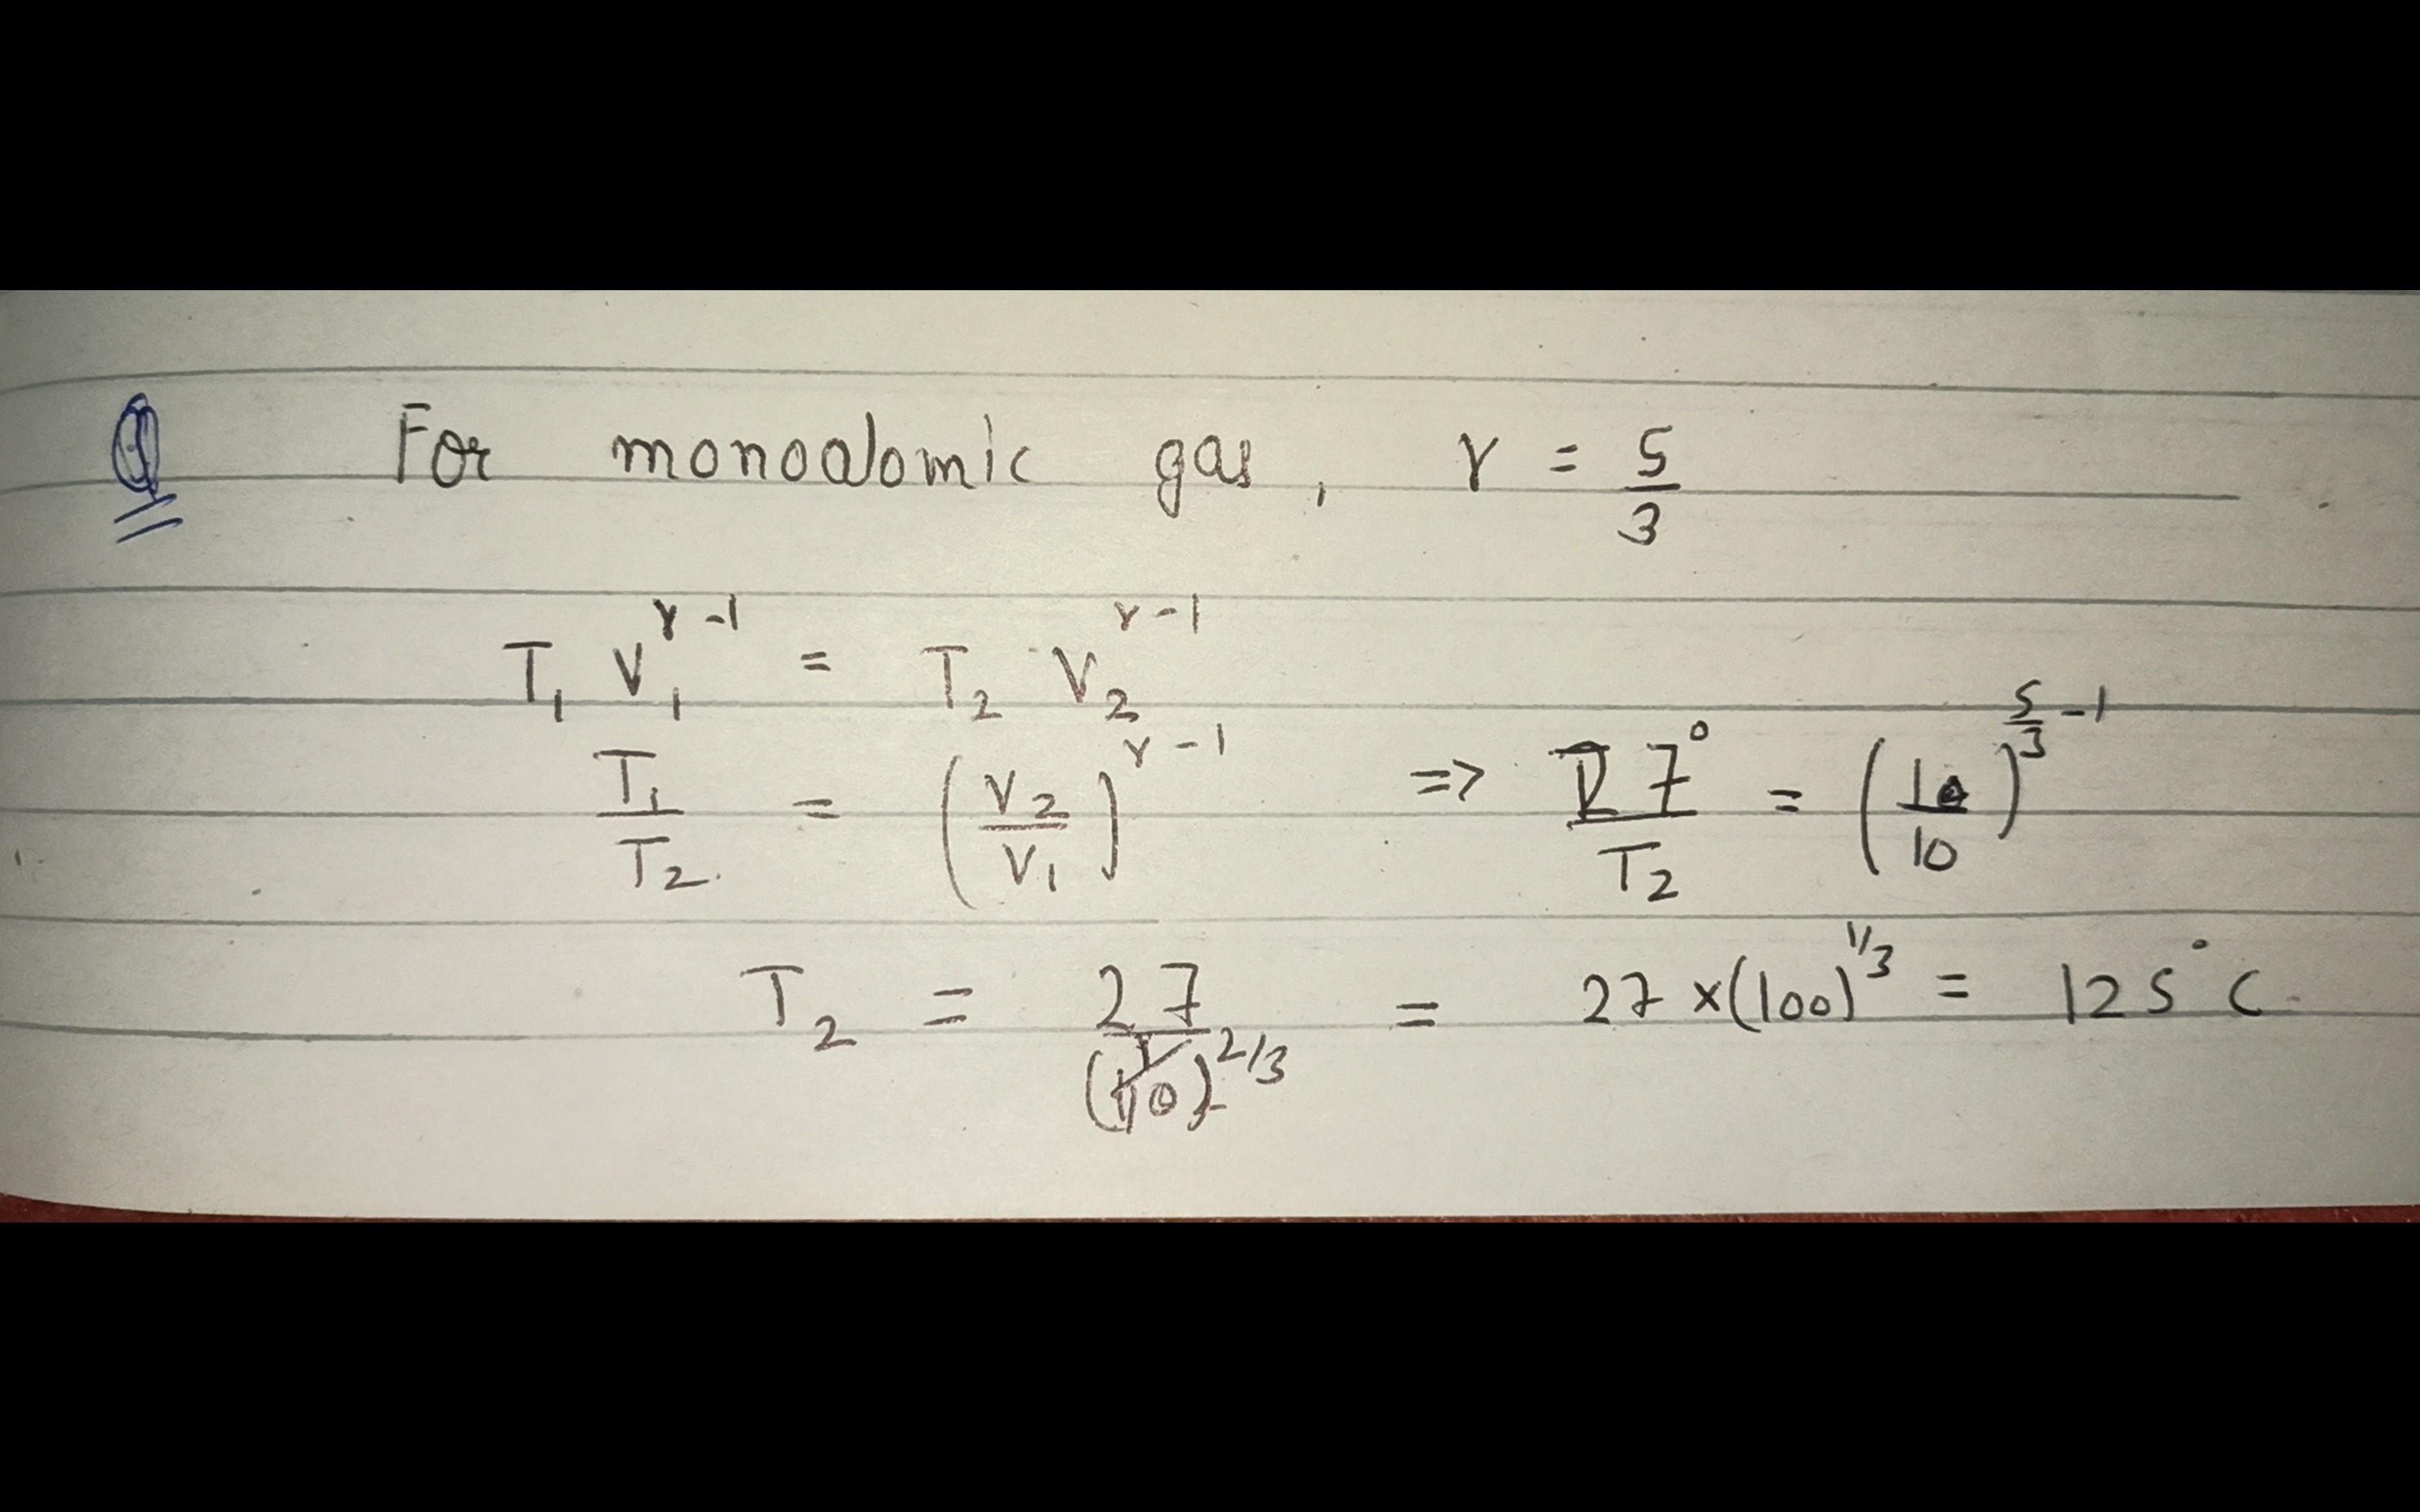 Q For monoatomic gas, γ = 5/3
T₁ V₁^(γ-1) = T₂ V₂^(γ-1)
T₁/T₂ = (V₂/V₁)^(γ-1) => 27°/T₂ = (1/10)^(5/3 -1)
T₂ = 27/(1/10)^(2/3) = 27 × (100)^(1/3) = 125°C